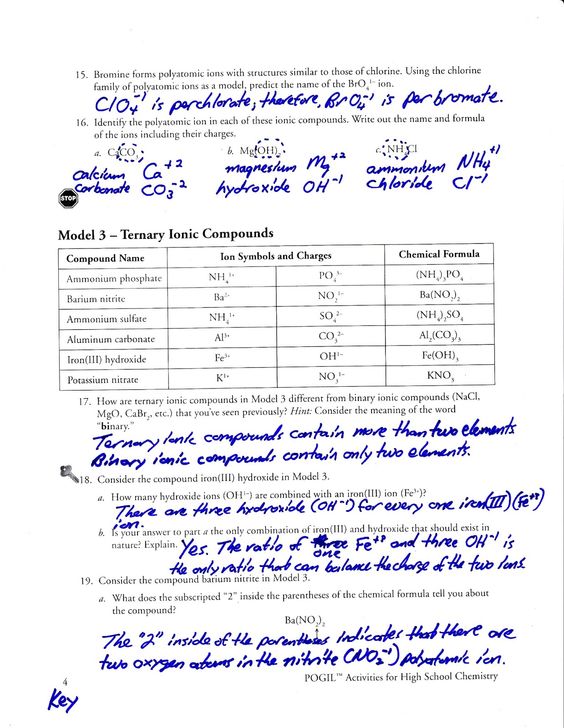 15. Bromine forms polyatomic ions with structures similar to those of chlorine. Using the chlorine
family of polyatomic ions as a model, predict the name of the BrO₄¹⁻ ion.
ClO₄⁻¹ is perchlorate; therefore, BrO₄⁻¹ is perbromate.
16. Identify the polyatomic ion in each of these ionic compounds. Write out the name and formula
of the ions including their charges.
a. CaCO₃ b. Mg(OH)₂ c. NH₄Cl
calcium Ca⁺² magnesium Mg⁺² ammonium NH₄⁺¹
carbonate CO₃⁻² hydroxide OH⁻¹ chloride Cl⁻¹
STOP
Model 3 – Ternary Ionic Compounds
Compound Name Ion Symbols and Charges Chemical Formula
Ammonium phosphate NH₄¹⁺ PO₄³⁻ (NH₄)₃PO₄
Barium nitrite Ba²⁺ NO₂¹⁻ Ba(NO₂)₂
Ammonium sulfate NH₄¹⁺ SO₄²⁻ (NH₄)₂SO₄
Aluminum carbonate Al³⁺ CO₃²⁻ Al₂(CO₃)₃
Iron(III) hydroxide Fe³⁺ OH¹⁻ Fe(OH)₃
Potassium nitrate K¹⁺ NO₃¹⁻ KNO₃
17. How are ternary ionic compounds in Model 3 different from binary ionic compounds (NaCl,
MgO, CaBr₂, etc.) that you've seen previously? Hint: Consider the meaning of the word
"binary."
Ternary ionic compounds contain more than two elements
Binary ionic compounds contain only two elements.
18. Consider the compound iron(III) hydroxide in Model 3.
a. How many hydroxide ions (OH¹⁻) are combined with an iron(III) ion (Fe³⁺)?
There are three hydroxide (OH⁻¹) for every one iron(III) (Fe⁺³)
ion.
b. Is your answer to part a the only combination of iron(III) and hydroxide that should exist in
nature? Explain. Yes. The ratio of one Fe⁺³ and three OH⁻¹ is
the only ratio that can balance the charge of the two ions.
19. Consider the compound barium nitrite in Model 3.
a. What does the subscripted "2" inside the parentheses of the chemical formula tell you about
the compound?
Ba(NO₂)₂
The "2" inside of the parentheses indicates that there are
two oxygen atoms in the nitrite (NO₂⁻¹) polyatomic ion.
4 POGIL™ Activities for High School Chemistry
Key